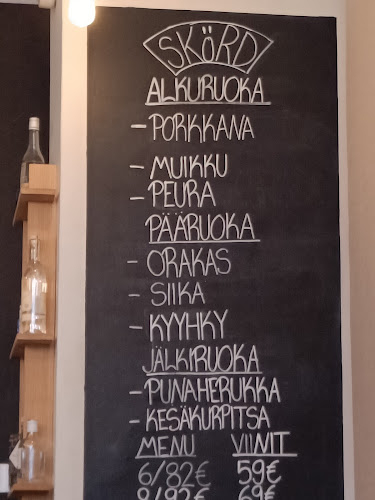 SKÖRD
ALKURUOKA
- PORKKANA
- MUIKKU
- PEURA
PÄÄRUOKA
- ORAKAS
- SIIKA
- KYYHKY
JÄLKIRUOKA
- PUNAHERUKKA
- KESÄKURPITSA
MENU VIINIT
6/82€ 59€
8/92€ 69€